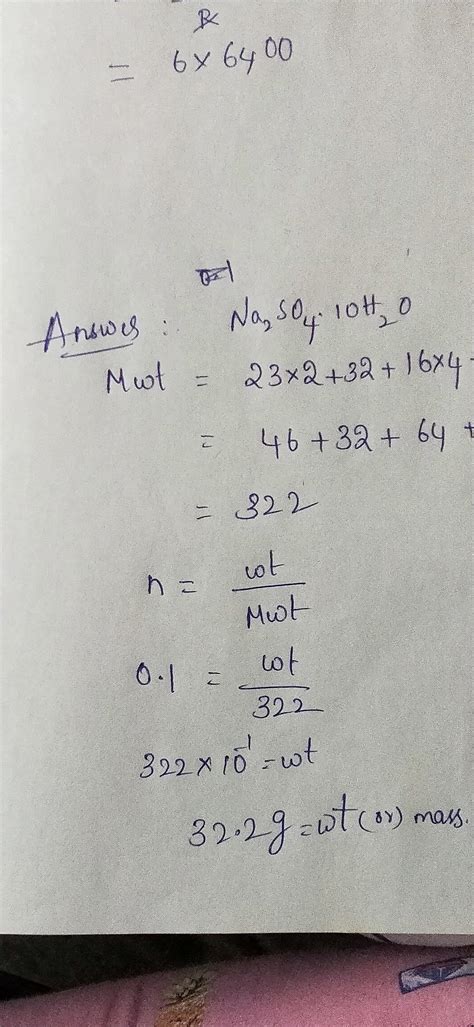 = 6×6400
Answer : Na₂SO₄.10H₂O
Mwt = 23×2+32+16×4
= 46+32+64+
= 322
n = wt/Mwt
0.1 = wt/322
322×10⁻¹=wt
32.2g=wt(or) mass.